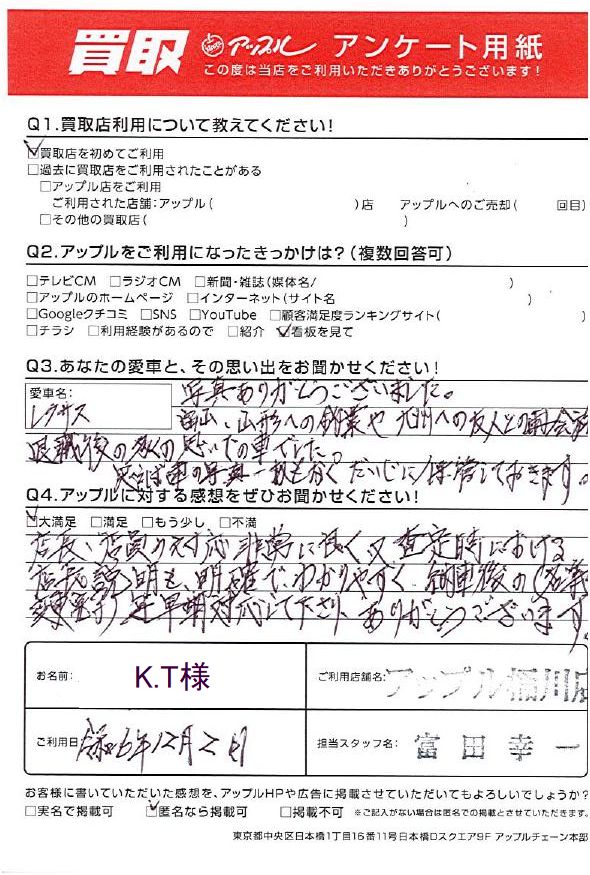 買取 Apple アップル アンケート用紙
この度は当店をご利用いただきありがとうございます！
Q1.買取店利用について教えてください！
☑買取店を初めてご利用
□過去に買取店をご利用されたことがある
□アップル店をご利用
ご利用された店舗:アップル( )店 アップルへのご売却( 回目)
□その他の買取店( )
Q2.アップルをご利用になったきっかけは？(複数回答可)
□テレビCM □ラジオCM □新聞・雑誌(媒体名/ )
□アップルのホームページ □インターネット(サイト名 )
□Googleクチコミ □SNS □YouTube □顧客満足度ランキングサイト( )
□チラシ □利用経験があるので □紹介 ☑看板を見て
Q3.あなたの愛車と、その思い出をお聞かせください！
愛車名：
レクサス
写真ありがとうございました。
山形への 九州への友人との
退職後の 思いでの車でした。
写真一枚もなく だいじに保管しておきます。
Q4.アップルに対する感想をぜひお聞かせください！
☑大満足 □満足 □もう少し □不満
店長、店員の対応 非常に良く 又 査定時における
店長説明も、明確で、わかりやすく 納車後の名義
変更 早期対応して下さり、ありがとうございます
お名前： K.T様
ご利用店舗名： アップル桶川店
ご利用日 令和6年12月2日
担当スタッフ名： 富田幸一
お客様に書いていただいた感想を、アップルHPや広告に掲載させていただいてもよろしいでしょうか？
□実名で掲載可 ☑匿名なら掲載可 □掲載不可 ※ご記入がない場合は匿名での掲載とさせていただきます。
東京都中央区日本橋1丁目16番11号日本橋Dスクエア9F アップルチェーン本部